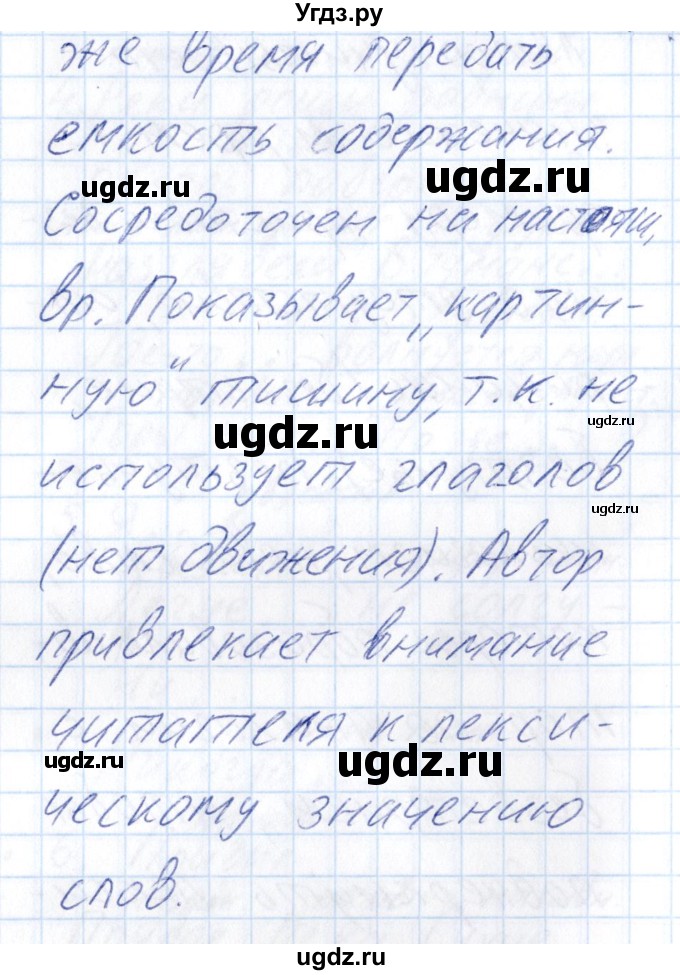 Угдз.ру
же время передать
емкость содержания.
ugdz.ru ugdz.ru
Сосредоточен на настоящ,
вр. Показывает „картин-
ную" тишину, т.к. не
ugdz.ru ugdz.ru
использует глаголов
ugdz.ru
(нет движения). Автор
привлекает внимание
читателя к лекси-
ugdz.ru ugdz.ru
ческому значению
слов.
ugdz.ru